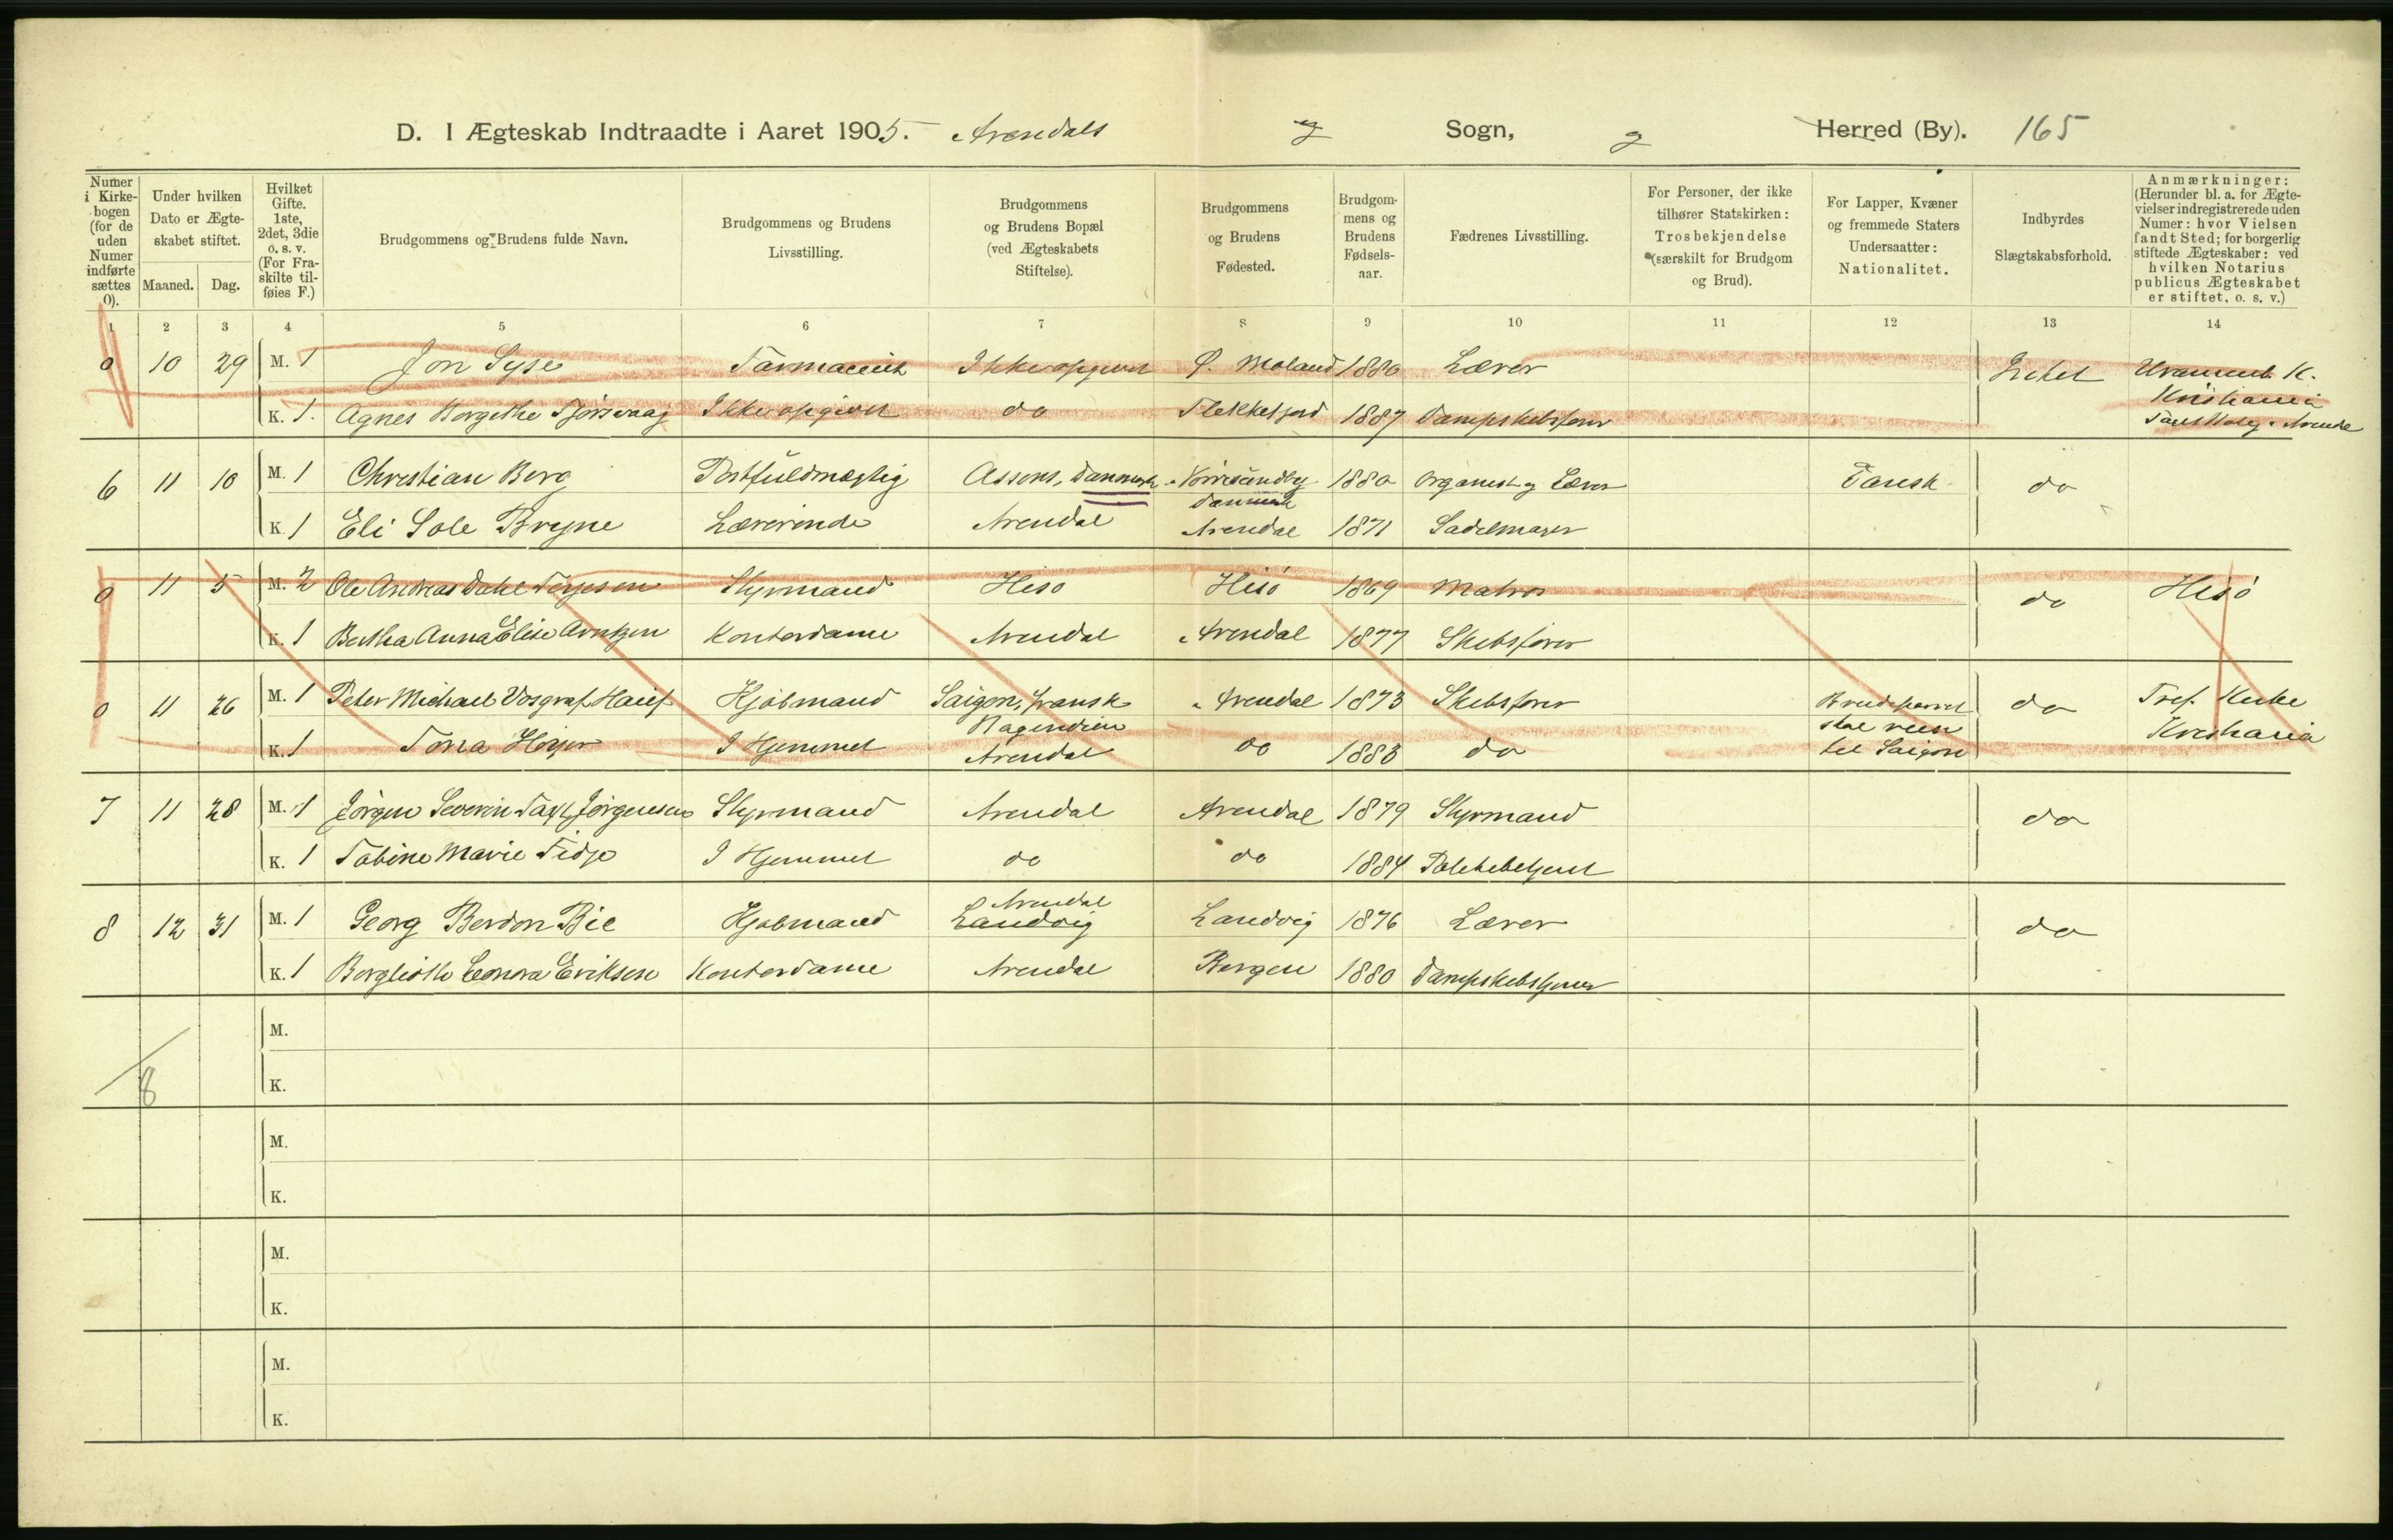 D. I Ægteskab Indtraadte i Aaret 1905. Arendals Sogn, Herred (By). 165
Numer i Kirkebogen (for de uden Numer indførte sættes 0).
Under hvilken Dato er Ægteskabet stiftet.
Maaned. Dag.
Hvilket Gifte. 1ste, 2det, 3die o. s. v. (For Fraskilte tilføies F.)
Brudgommens og Brudens fulde Navn.
Brudgommens og Brudens Livsstilling.
Brudgommens og Brudens Bopæl (ved Ægteskabets Stiftelse).
Brudgommens og Brudens Fødested.
Brudgommens og Brudens Fødselsaar.
Fædrenes Livsstilling.
For Personer, der ikke tilhører Statskirken: Trosbekjendelse (særskilt for Brudgom og Brud).
For Lapper, Kvæner og fremmede Staters Undersaatter: Nationalitet.
Indbyrdes Slægtskabsforhold.
Anmærkninger: (Herunder bl. a. for Ægtevielser indregistrerede uden Numer: hvor Vielsen fandt Sted; for borgerlig stiftede Ægteskaber: ved hvilken Notarius publicus Ægteskabet er stiftet, o. s. v.)
1 2 3 4 5 6 7 8 9 10 11 12 13 14
0 10 29 M. 1 Jon Lyse Farmaceut Ikke opgivet Ø. Moland 1880 Lærer Intet Uranienb. K. Kristiania
K. 1. Agnes Bergithe Tjørsvaag Ikke opgivet do Flekkefjord 1887 Dampskibsfører
6 11 10 M. 1 Christian Berg Postfuldmægtig Assens, Danmark Nörresundby Danmark 1880 Organist og Lærer Dansk do
K. 1 Eli Sole Bryne Lærerinde Arendal Arendal 1871 Sadelmager
0 11 5 M. 2 Ole Andreas Dahl Terjesen Styrmand Hisö Hisö 1869 Matros do Hisö
K. 1 Bertha Anna Elise Arntzen Kontordame Arendal Arendal 1877 Skibsfører
0 11 26 M. 1 Peter Michael Vosgraf Kjøbmand Saigon, fransk Arendal 1873 Skibsfører Brudeparret skal reise til Saigon do Tref. Kirke Kristiania
K. 1 I Hjemmet Arendal do 1883 do
7 11 28 M. 1 Jörgen Severin Jörgensen Styrmand Arendal Arendal 1879 Styrmand do
K. 1 Tabine Marie Fidje I Hjemmet do do 1884 Politibetjent
8 12 31 M. 1 Georg Berdon Bie Kjøbmand Arendal Landvig Landvig 1876 Lærer do
K. 1 Borglioth Leonora Eriksen Kontordame Arendal Bergen 1880
M.
K.
8
M.
K.
M.
K.
M.
K.